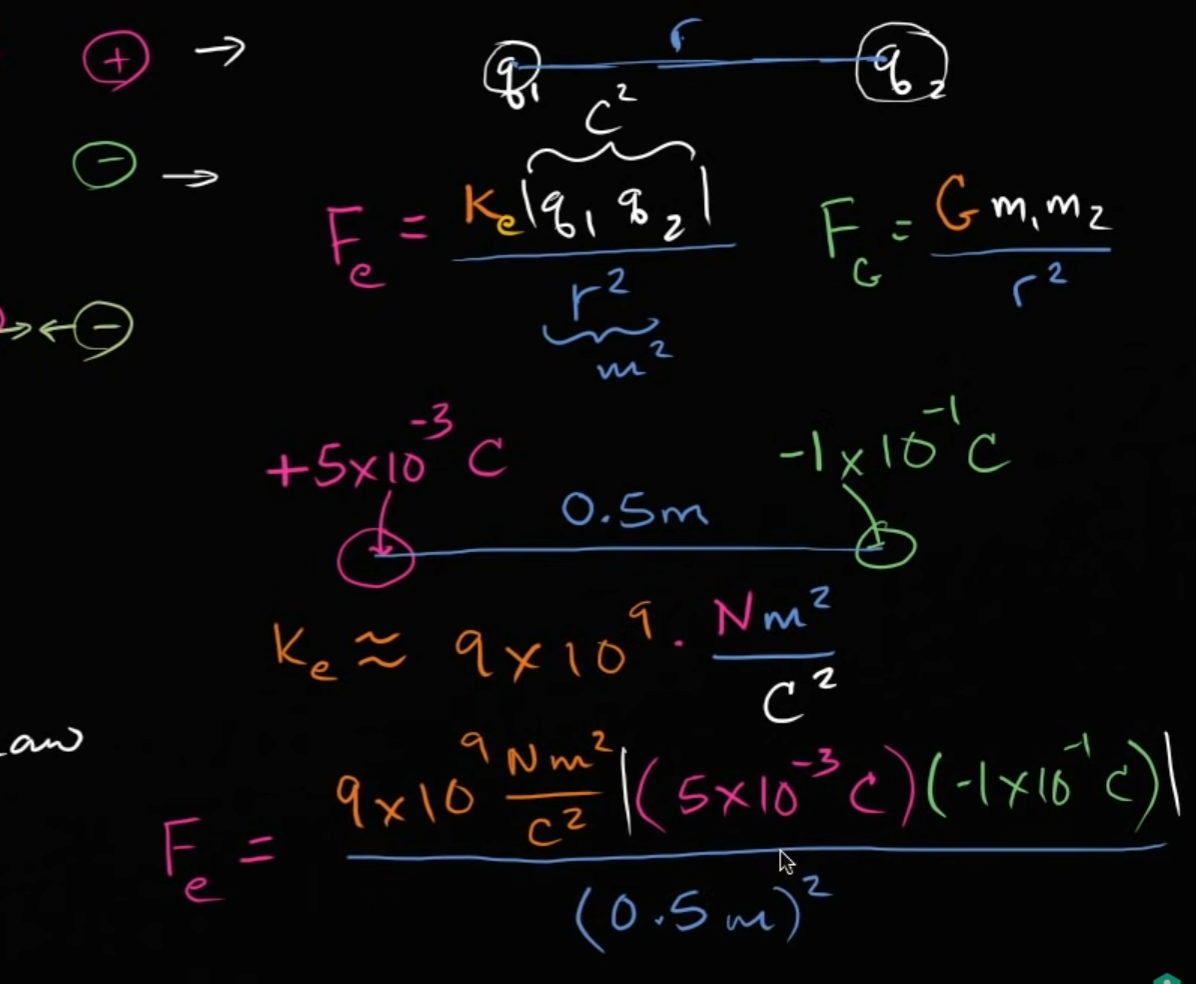 + → q₁ r q₂
C²
− →
Fₑ = Kₑ|q₁ q₂| / r²
F_G = G m₁m₂ / r²
m²
→← −
+5×10⁻³ C
-1×10⁻¹ C
0.5m
Kₑ ≈ 9×10⁹ · Nm² / C²
Law
Fₑ = 9×10⁹ Nm²/C² |(5×10⁻³ C)(-1×10⁻¹ C)| / (0.5m)²